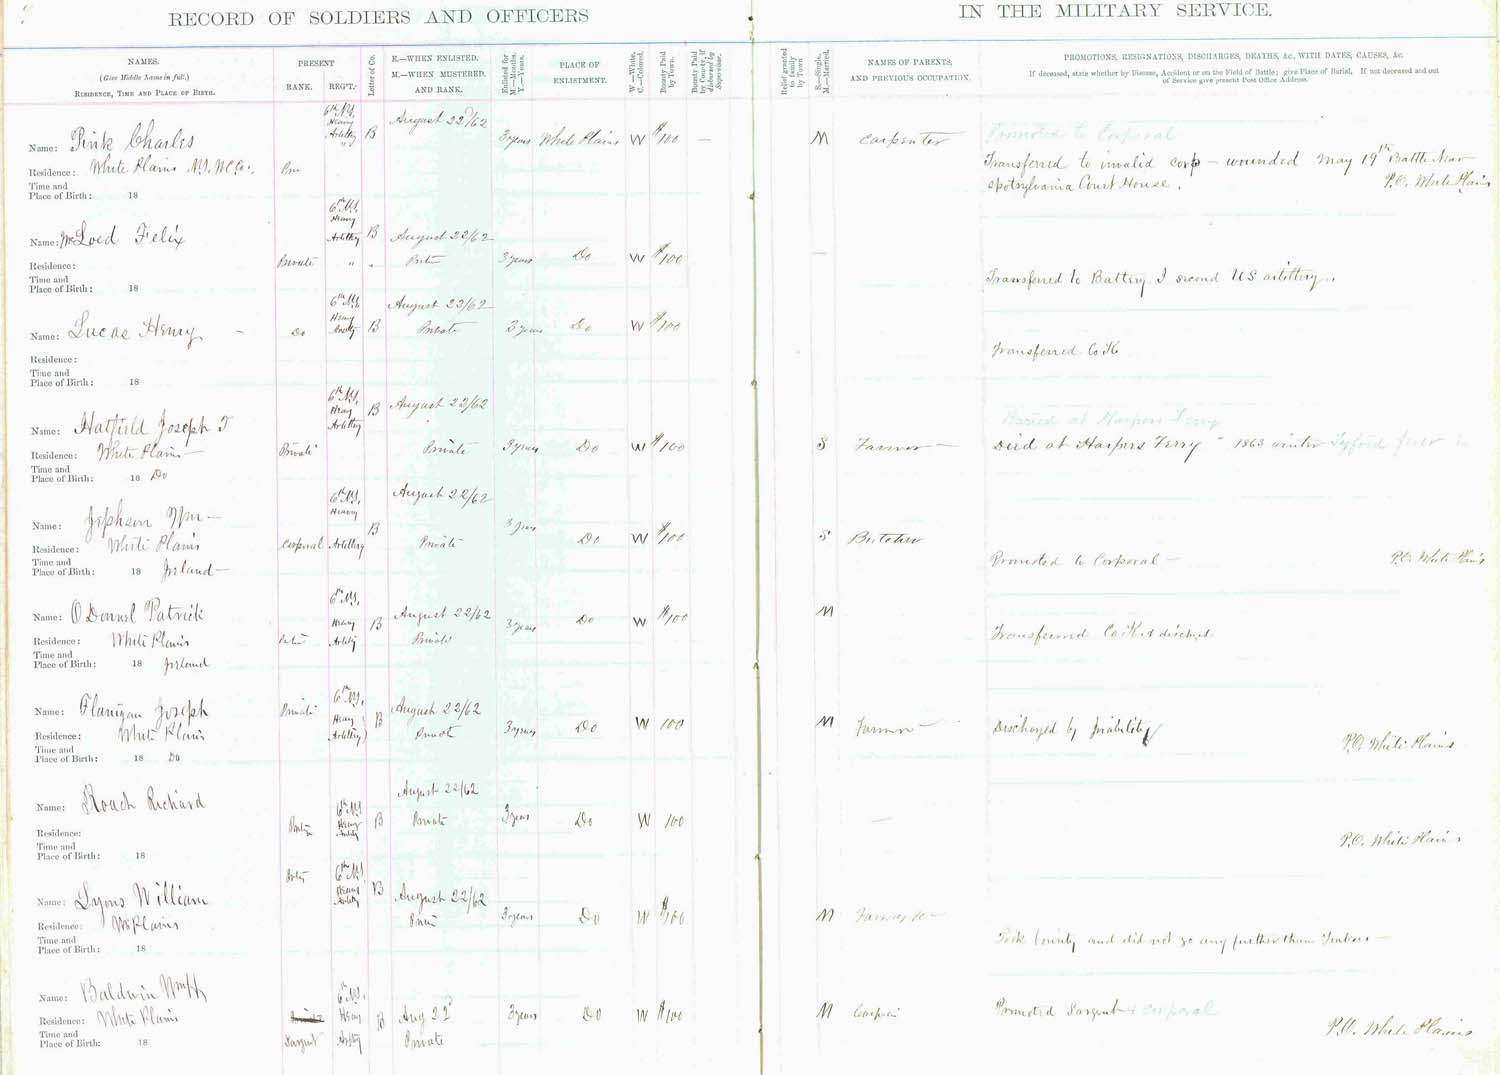 RECORD OF SOLDIERS AND OFFICERS IN THE MILITARY SERVICE.
NAMES.
(Give Middle Name in full.)
RESIDENCE, TIME AND PLACE OF BIRTH.
PRESENT
RANK.
REG'T.
Letter of Co.
E.—WHEN ENLISTED.
M.—WHEN MUSTERED.
AND RANK.
Enlisted for
M.—Months.
Y.—Years.
PLACE OF
ENLISTMENT.
W.—White.
C.—Colored.
Bounty Paid
by Town.
Bounty Paid
by County, if
disbursed by
Supervisor.
Relief granted
to family
by Town
S.—Single.
M.—Married.
NAMES OF PARENTS,
AND PREVIOUS OCCUPATION.
PROMOTIONS, RESIGNATIONS, DISCHARGES, DEATHS, &c., WITH DATES, CAUSES, &c.
If deceased, state whether by Disease, Accident or on the Field of Battle; give Place of Burial. If not deceased and out
of Service give present Post Office Address.
Name: Pink Charles
Residence: White Plains N.Y. W.C Co.
Time and
Place of Birth: 18
6th N.Y. Heavy Artillery B August 22/62 3 years White Plains W $100 —
M Carpenter
Promoted to Corporal
Transferred to invalid corp — wounded May 19th Battle Near
Spotsylvania Court House. P.O. White Plains
Name: McLoed Felix
Residence:
Time and
Place of Birth: 18
Private 6th N.Y. Heavy Artillery B August 22/62 3 years Do W $100
Transferred to Battery I second US artillery.
Name: Lucas Henry —
Residence:
Time and
Place of Birth: 18
Do 6th N.Y. Heavy B August 23/62 Private 3 years Do W $100
Transferred Co K
Name: Hatfield Joseph T
Residence: White Plains —
Time and
Place of Birth: 18 Do
Private 6th N.Y. Heavy Artillery B August 23/62 Private 3 years Do W $100
S Farmer —
Buried at Harpers Ferry
Died at Harpers Ferry 1863 winter Tyford fever
Name: Jephson Wm —
Residence: White Plains
Time and
Place of Birth: 18 Ireland —
Corporal 6th N.Y. Heavy Artillery B August 22/62 Private 3 years Do W $100
S Butcher
Promoted to Corporal — P.O. White Plains
Name: O Donnel Patrick
Residence: White Plains
Time and
Place of Birth: 18 Ireland
6th N.Y. Heavy B August 22/62 Private 3 years Do W $100
M
Transferred Co K &
Name: Flanigan Joseph
Residence: White Plains
Time and
Place of Birth: 18 Do
Private 6th N.Y. Heavy Artillery B August 22/62 3 years Do W 100
M Farmer —
Discharged by P.O. White Plains
Name: Roach Richard
Residence:
Time and
Place of Birth: 18
6th N.Y. Heavy B August 22/62 Private 3 years Do W 100
P.O. White Plains
Name: Lyons William
Residence: W Plains
Time and
Place of Birth: 18
6th N.Y. Heavy B August 22/62 3 years Do W $100
M
Took bounty and did not go any further than —
Name: Baldwin Wm
Residence: White Plains
Time and
Place of Birth: 18
Sargent 6th N.Y. Heavy B Aug 22 Private 3 years Do W $100
M
Promoted Sargent & Corporal
P.O. White Plains